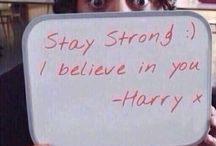 Stay Strong :)
I believe in you
-Harry x